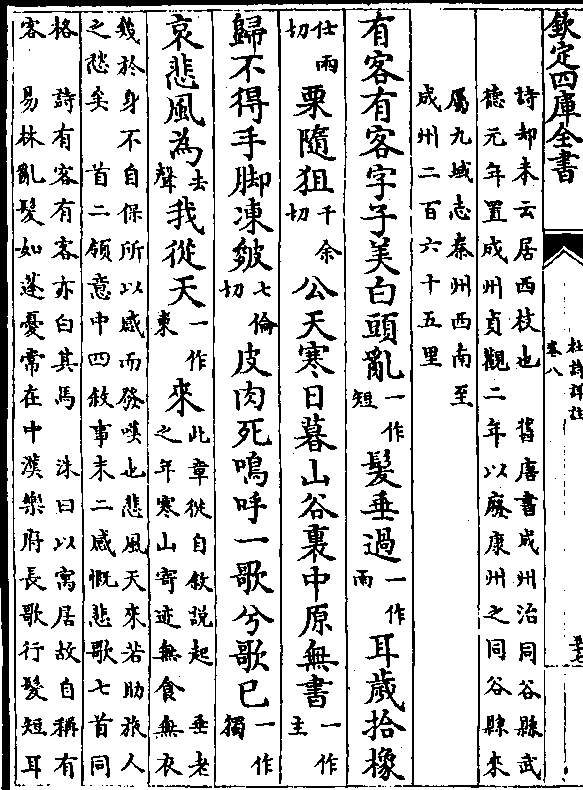 欽定四庫全書
杜詩詳注
卷八
詩却未云居西枝也 舊唐書成州治同谷縣武
德元年置成州貞觀二年以廢康州之同谷縣來
屬九域志秦州西南至
成州二百六十五里
有客有客字子美白頭亂一作短髮垂過一作兩耳歲拾橡
仕雨切栗隨狙千余切公天寒日暮山谷裏中原無書一作主
歸不得手脚凍皴七倫切皮肉死嗚呼一歌兮歌已一作獨
哀悲風為去聲我從天一作東來此章從自敘說起 垂老之年寒山寄迹無食無衣
幾於身不自保所以感而發嘆也悲風天來若助旅人
之愁矣 首二領意中四敘事末二感慨悲歌七首同
格 詩有客有客亦白其馬 洙曰以寓居故自稱有
客 易林亂髮如蓬憂常在中漢樂府長歌行髮短耳